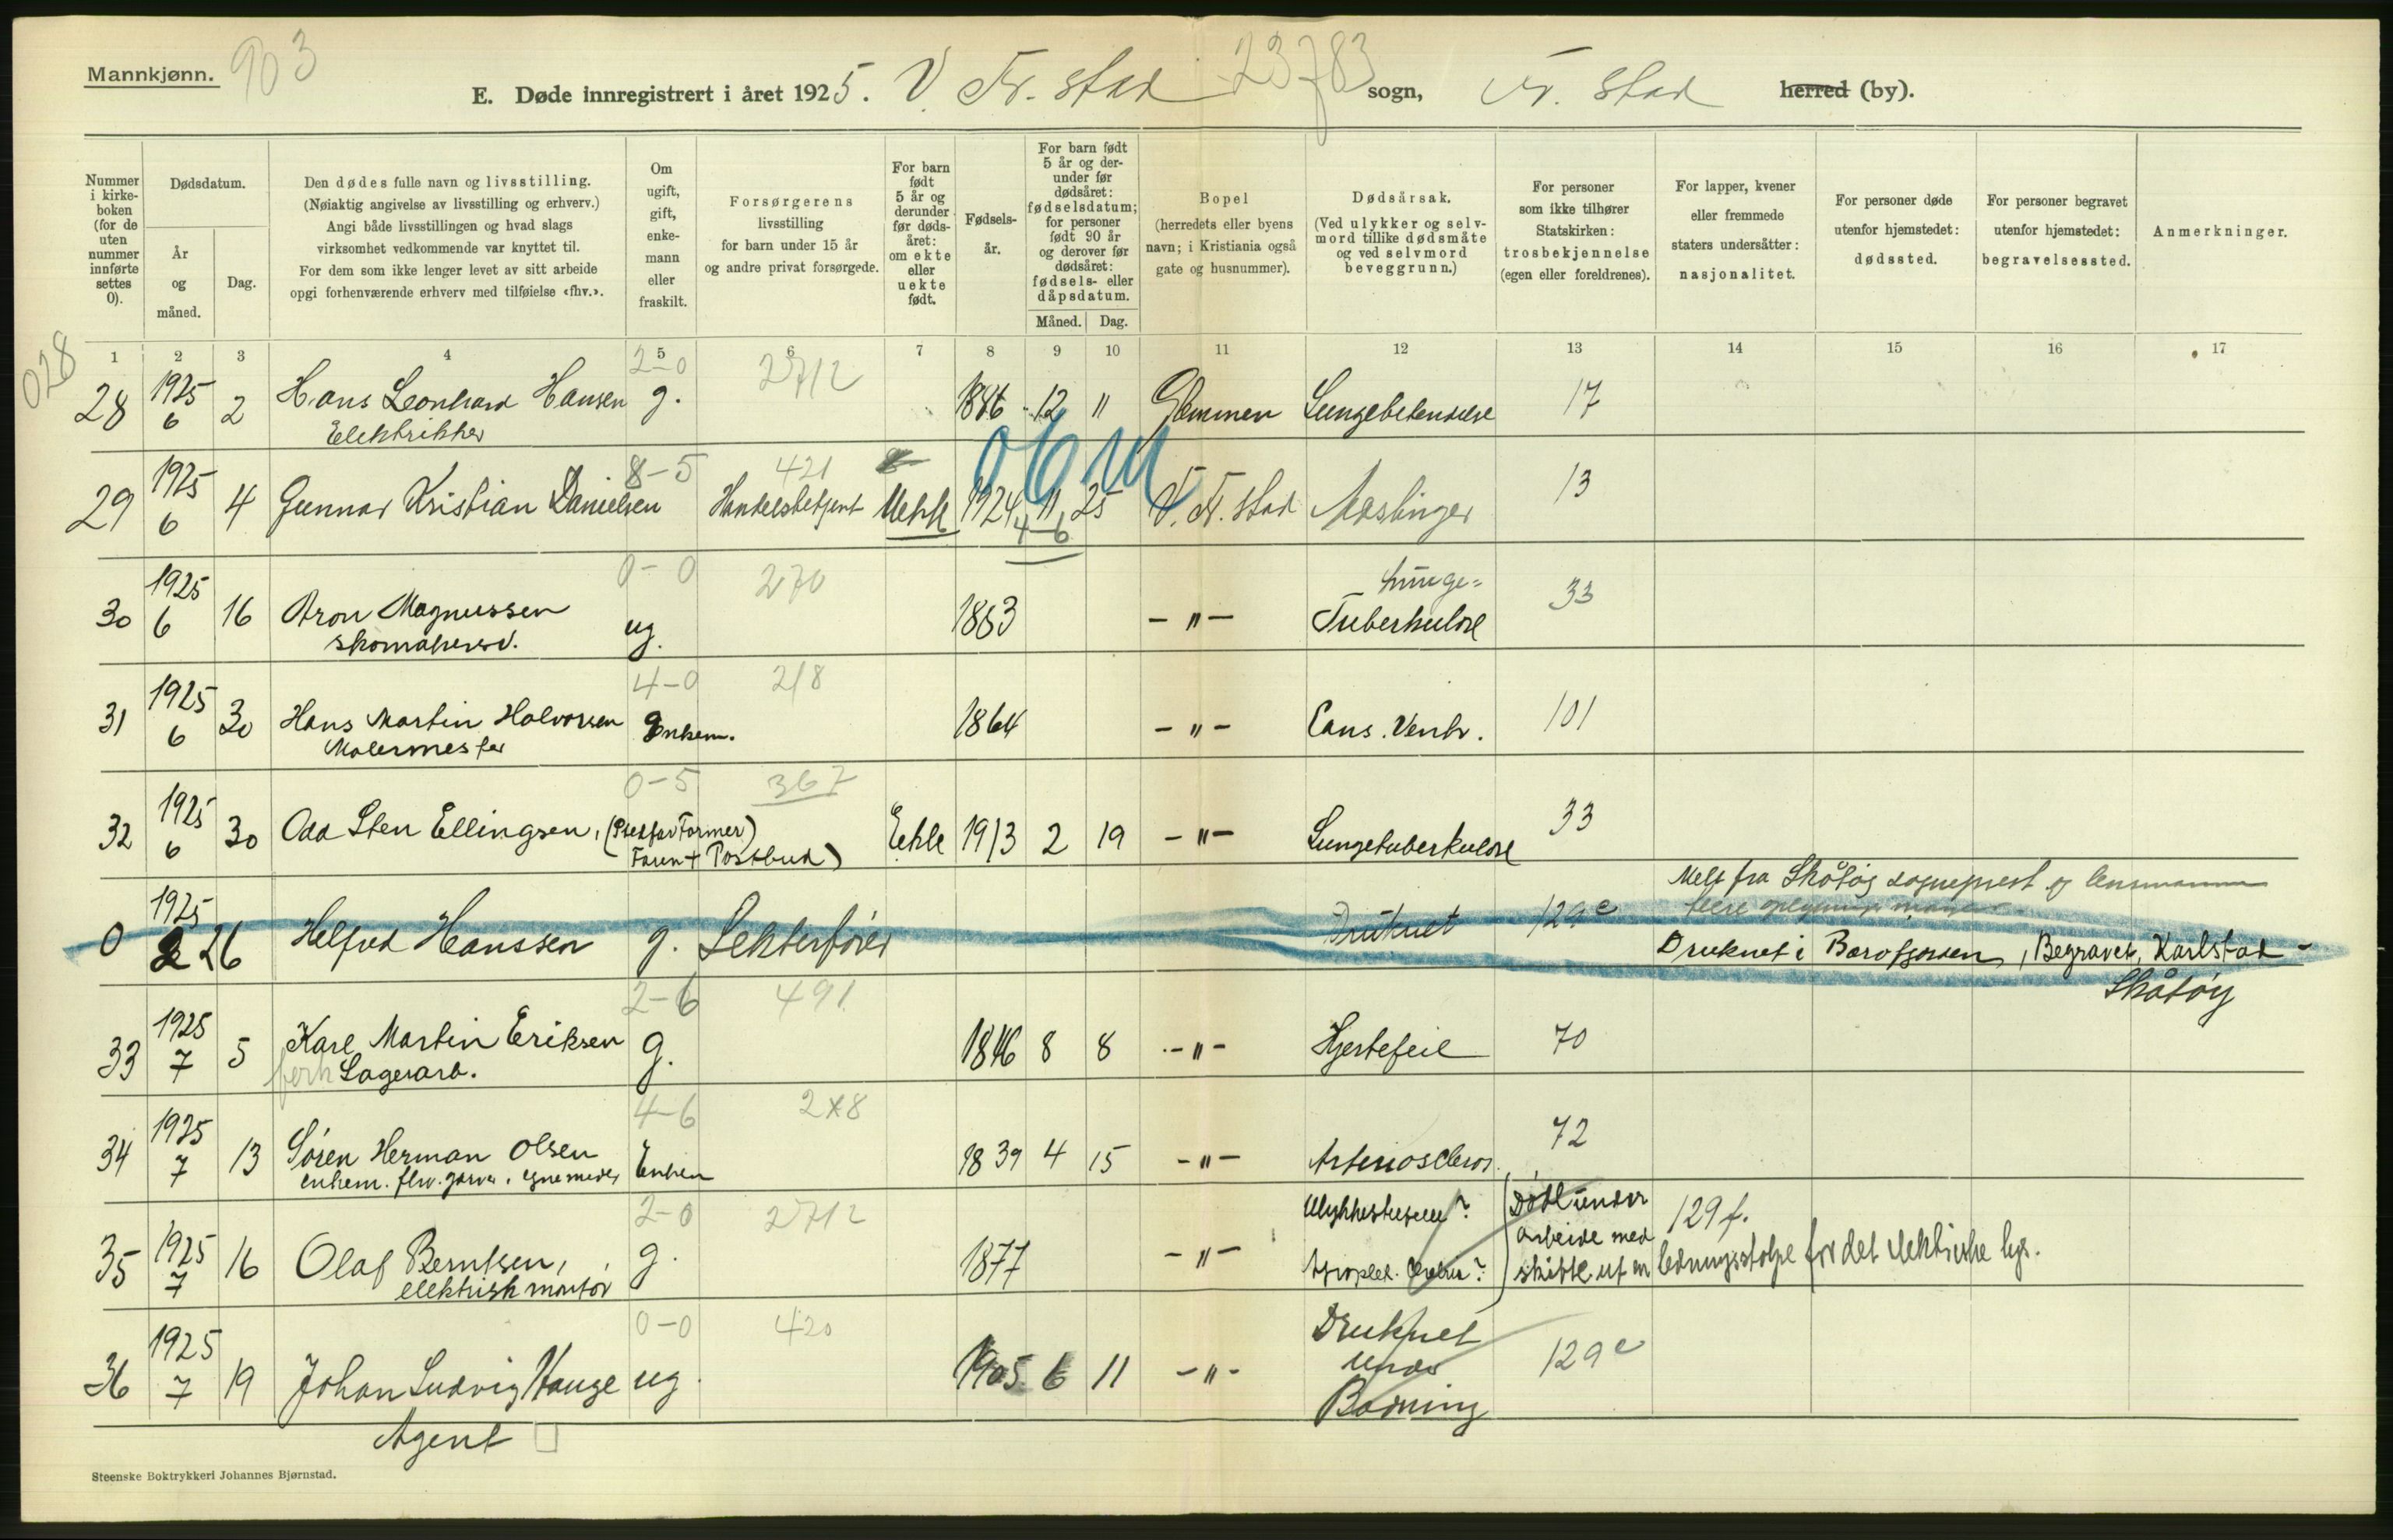 Mannkjønn.
903
23783
E. Døde innregistrert i året 1925. V. Fr. stad sogn, Fr. stad herred (by).
Nummer i kirke- boken (for de uten nummer innførte settes 0).
Dødsdatum.
År og måned.
Dag.
Den dødes fulle navn og livsstilling.
(Nøiaktig angivelse av livsstilling og erhverv.)
Angi både livsstillingen og hvad slags
virksomhet vedkommende var knyttet til.
For dem som ikke lenger levet av sitt arbeide
opgi forhenværende erhverv med tilføielse «fhv.».
Om ugift, gift, enke- mann eller fraskilt.
Forsørgerens
livsstilling
for barn under 15 år
og andre privat forsørgede.
For barn født 5 år og derunder før døds- året: om ekte eller uekte født.
Fødsels- år.
For barn født 5 år og der- under før dødsåret: fødselsdatum; for personer født 90 år og derover før dødsåret: fødsels- eller dåpsdatum.
Måned. Dag.
Bopel
(herredets eller byens
navn; i Kristiania også
gate og husnummer).
Dødsårsak.
(Ved ulykker og selv-
mord tillike dødsmåte
og ved selvmord
beveggrunn.)
For personer
som ikke tilhører
Statskirken:
trosbekjennelse
(egen eller foreldrenes).
For lapper, kvener
eller fremmede
staters undersåtter:
nasjonalitet.
For personer døde
utenfor hjemstedet:
dødssted.
For personer begravet
utenfor hjemstedet:
begravelsessted.
Anmerkninger.
1 2 3 4 5 6 7 8 9 10 11 12 13 14 15 16 17
028
2-0 2712
28 1925 6 2 Hans Leonhard Hansen g. 1886 12 11 Glemmen Lungebetendelse 17
Elektrikker
8-5 421
29 1925 6 4 Gunnar Kristian Danielsen Handelsbetjent Uekte 1924 11 25 V. Fr. stad Mæslinger 13
4-6
0-0 270
Lunge-
30 1925 6 16 Aron Magnussen ug. 1863 -"- Tuberkulose 33
skomakersv.
4-0 218
31 1925 6 30 Hans Martin Halvorsen Enkem. 1864 -"- Canc. Ventr. 101
Malermester
0-5 367
32 1925 6 30 Odd Sten Ellingsen, (Pleiefar Former) Ekte 1913 2 19 -"- Lungetuberkulose 33
Faren + Postbud)
Melt fra Skåtøy sogneprest og lensmann
0 1925 2 26 Helfred Hanssen g. Lekterfører Druknet 129 c
Druknet i Barofjorden, Begravet, Karlstad -
Skåtøy
2-6 491
33 1925 7 5 Karl Martin Eriksen g. 1846 8 8 -"- Hjertefeil 70
forh Lagerarb.
4-6 2x8
34 1925 7 13 Sören Herman Olsen Enkem 1839 4 15 -"- Arterioscleros. 72
enkem. fhv. garver
2-0 2712
Ulykkestilfelle? (Döde under 129 f.
35 1925 7 16 Olaf Berntsen, g. 1877 -"- arbeide med
elektrisk montör Apoplex. Cerebri? skifte ut en ledningsstolpe for det elektriske lys.
0-0 420
36 1925 7 19 Johan Ludvig Hauge ug. 1905 6 11 -"- Druknet under Badning 129 c
Agent
Steenske Boktrykkeri Johannes Bjørnstad.